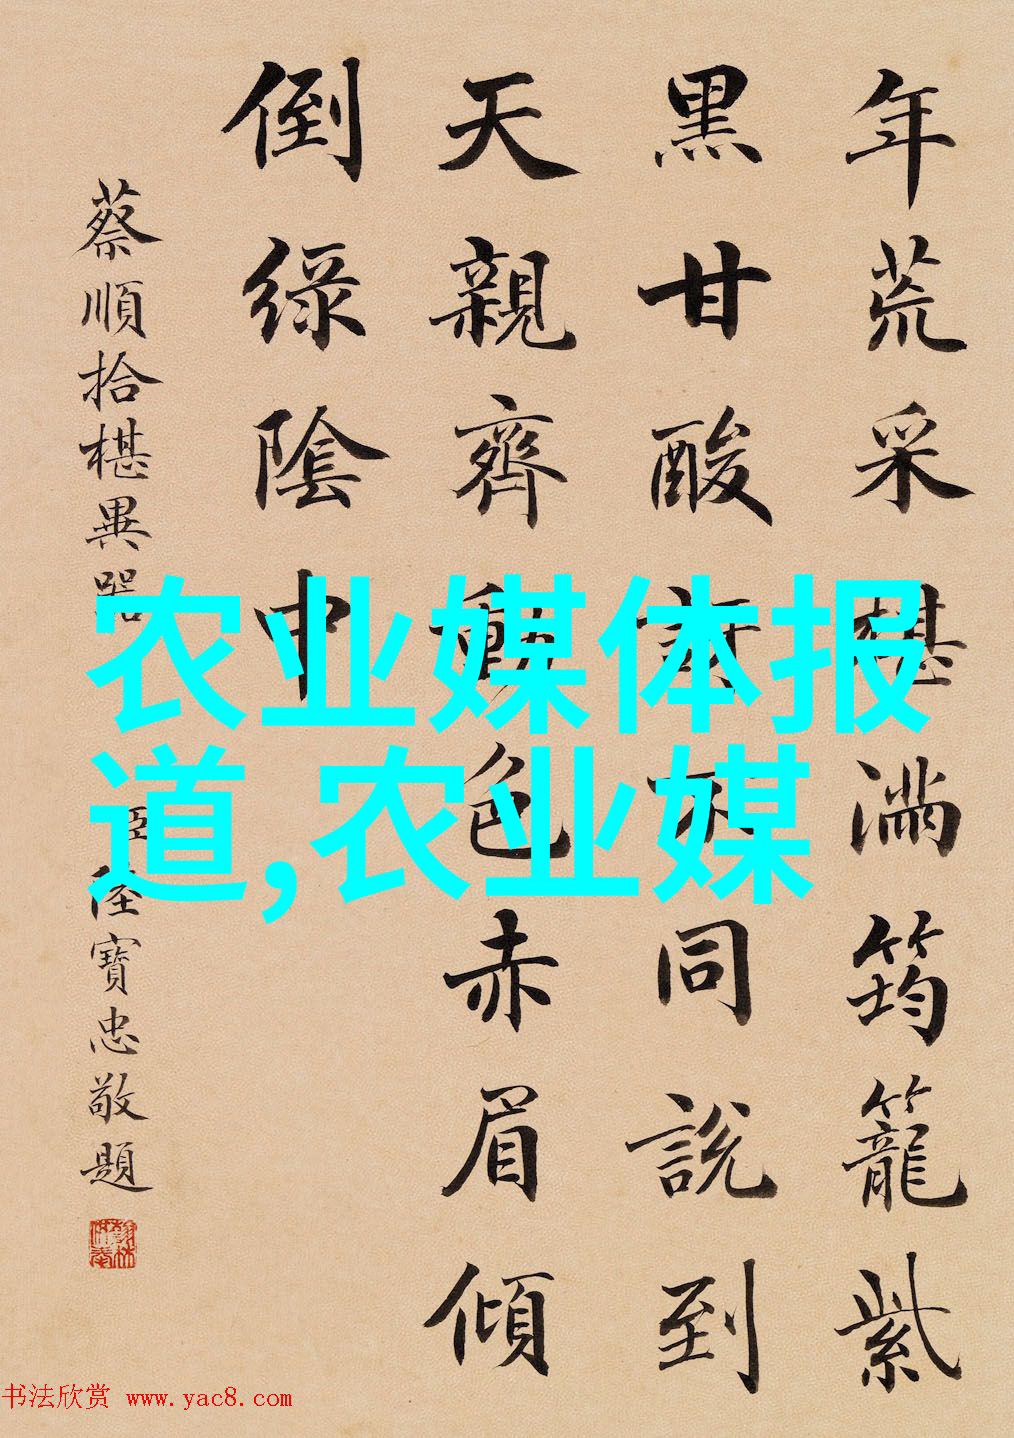 年荒采椹滿筠籠紫
黑甘酸不同說到
天親齊動色赤眉傾
倒綠陰中
蔡順拾椹異器
臣陸寶忠敬題
农业媒体报道,农业媒
书法欣赏 www.yac8.com